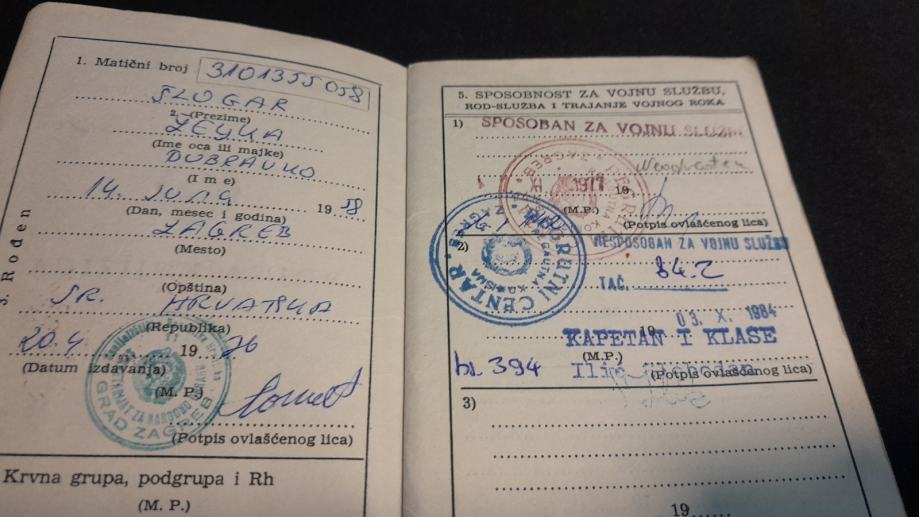 1. Matični broj 3101355058
SLOGAR
2. (Prezime)
(Ime oca ili majke)
DUBRAVKO
(Ime)
14. JUNA 19 58
(Dan, mesec i godina)
ZAGREB
(Mesto)
3. Rođen
(Opština)
SR. HRVATSKA
(Republika)
20.4 19 76
(Datum izdavanja)
(M. P.)
GRAD ZAGREB
(Potpis ovlašćenog lica)
Krvna grupa, podgrupa i Rh
(M. P.)
5. SPOSOBNOST ZA VOJNU SLUŽBU,
ROD-SLUŽBA I TRAJANJE VOJNOG ROKA
1) SPOSOBAN ZA VOJNU SLUŽBU
1977 19
(M.P.)
(Potpis ovlašćenog lica)
2) NESPOSOBAN ZA VOJNU SLUŽBU
TAČ. 84.2
19 03. X. 1984
KAPETAN I KLASE
(M.P.)
br. 394 Ilić
(Potpis ovlašćenog lica)
3)
19